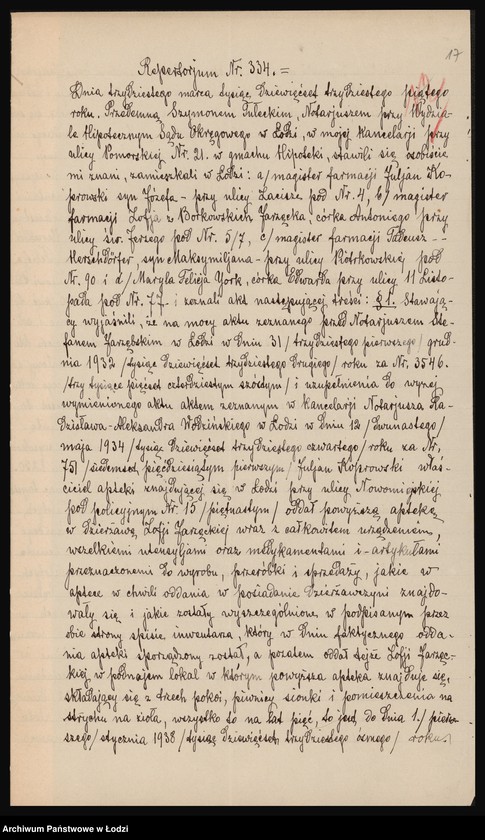 17
Repertorjum Nr. 334. =
Dnia trzydziestego marca tysiąc dziewięćset trzydziestego piątego
roku. Przedemną Szymonem Tuleckim, Notarjuszem przy Wydzia-
le Hipotecznym Sądu Okręgowego w Łodzi, w mojej kancelarji przy
ulicy Pomorskiej Nr. 21. w gmachu Hipoteki, stawili się osobiście
mi znani, zamieszkali w Łodzi: a/ magister farmacji Juljan Ko-
prowski syn Józefa - przy ulicy Zacisze pod Nr. 4, b/ magister
farmacji Zofja z Borkowskich Zarzęcka, córka Antoniego przy
ulicy św. Jerzego pod Nr. 5/7, c/ magister farmacji Tadeusz - -
Herszdörfer, syn Maksymiljana - przy ulicy Piotrkowskiej pod
Nr. 90 i d/ Maryla Felicja York, córka Edwarda przy ulicy 11 Listo-
pada pod Nr. 77. i zeznali akt następującej treści: § 1. Stawają-
cy wyjaśnili, że na mocy aktu zeznanego przed Notarjuszem Ste-
fanem Zarzębskim w Łodzi w dniu 31/ trzydziestego pierwszego/ grud-
nia 1932 /tysiąc dziewięćset trzydziestego drugiego/ roku za Nr. 3546.
/trzy tysiące pięćset czterdziestym szóstym/ i uzupełnienia do wyżej
wymienionego aktu aktem zeznanym w kancelarji Notarjusza Ra-
dzisława-Aleksandra Wodzińskiego w Łodzi w dniu 12/ dwunastego/
maja 1934 /tysiąc dziewięćset trzydziestego czwartego/ roku za Nr,
751 /siedemset pięćdziesiątym pierwszym/ Juljan Koprowski właś-
ciciel apteki znajdującej się w Łodzi przy ulicy Nowomiejskiej
pod policyjnym Nr. 15 /piętnastym/ oddał powyższą aptekę
w dzierżawę Zofji Zarzęckiej wraz z całkowitem urządzeniem,
wszelkiemi utensyljami oraz medykamentami i - artykułami
przeznaczonemi do wyrobu, przeróbki i sprzedaży, jakie w
aptece w chwili oddania w posiadanie dzierżawczyni znajdo-
wały się i jakie zostały wyszczególnione w podpisanym przez
obie strony spisie inwentarza, który w dniu faktycznego odda-
nia apteki sporządzony został, a pozatem oddał tejże Zofji Zarzęc-
kiej w podnajem lokal w którym powyższa apteka znajduje się,
składający się z trzech pokoi, piwnicy sionki i pomieszczenia na
strychu na zioła, wszystko to na lat pięć, to jest do dnia 1. /pierw-
szego/ stycznia 1938 /tysiąc dziewięćset trzydziestego ósmego/ roku.
Archiwum Państwowe w Łodzi